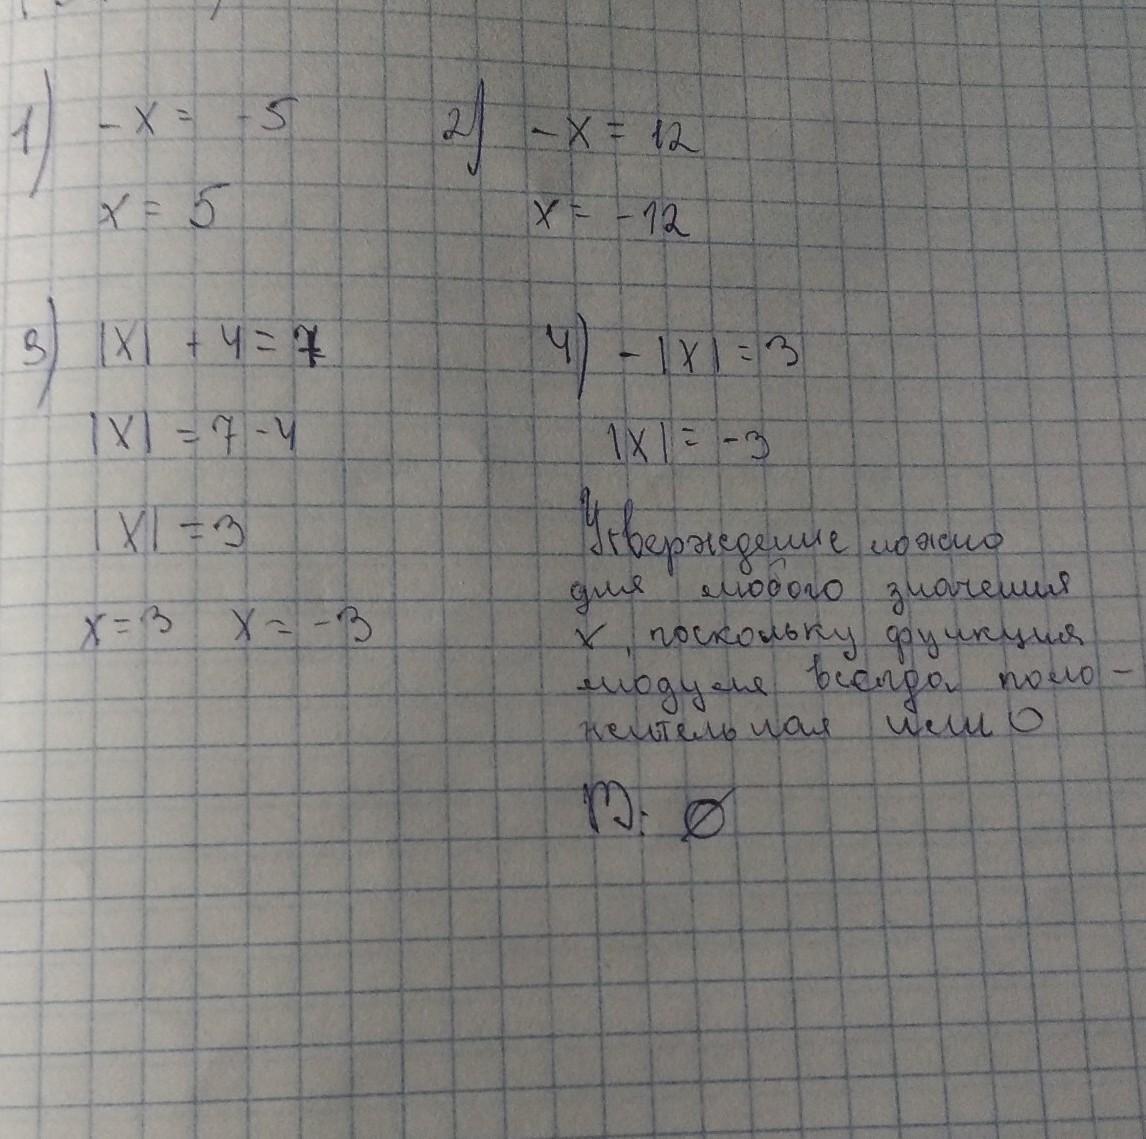 1) -x = -5
x = 5
2) -x = 12
x = -12
3) |x| + 4 = 7
|x| = 7 - 4
|x| = 3
x = 3 x = -3
4) -|x| = 3
|x| = -3
Утверждение ложно
для любого значения
x, поскольку функция
модуля всегда поло-
жительная или 0
∅